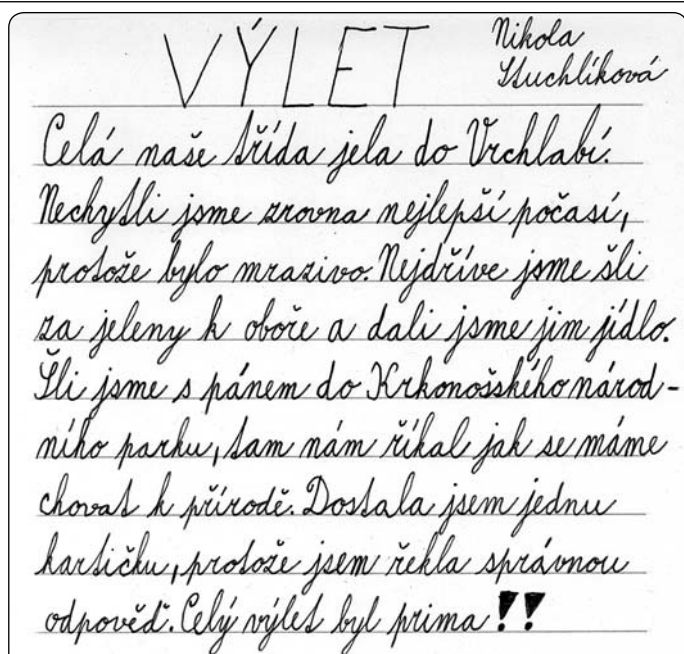 VÝLET Nikola
Stuchlíková
Celá naše třída jela do Vrchlabí.
Nechytli jsme zrovna nejlepší počasí,
protože bylo mrazivo. Nejdříve jsme šli
za jeleny k oboře a dali jsme jim jídlo.
Šli jsme s pánem do Krkonošského národ-
ního parku, tam nám říkal jak se máme
chovat k přírodě. Dostala jsem jednu
kartičku, protože jsem řekla správnou
odpověď. Celý výlet byl prima!!